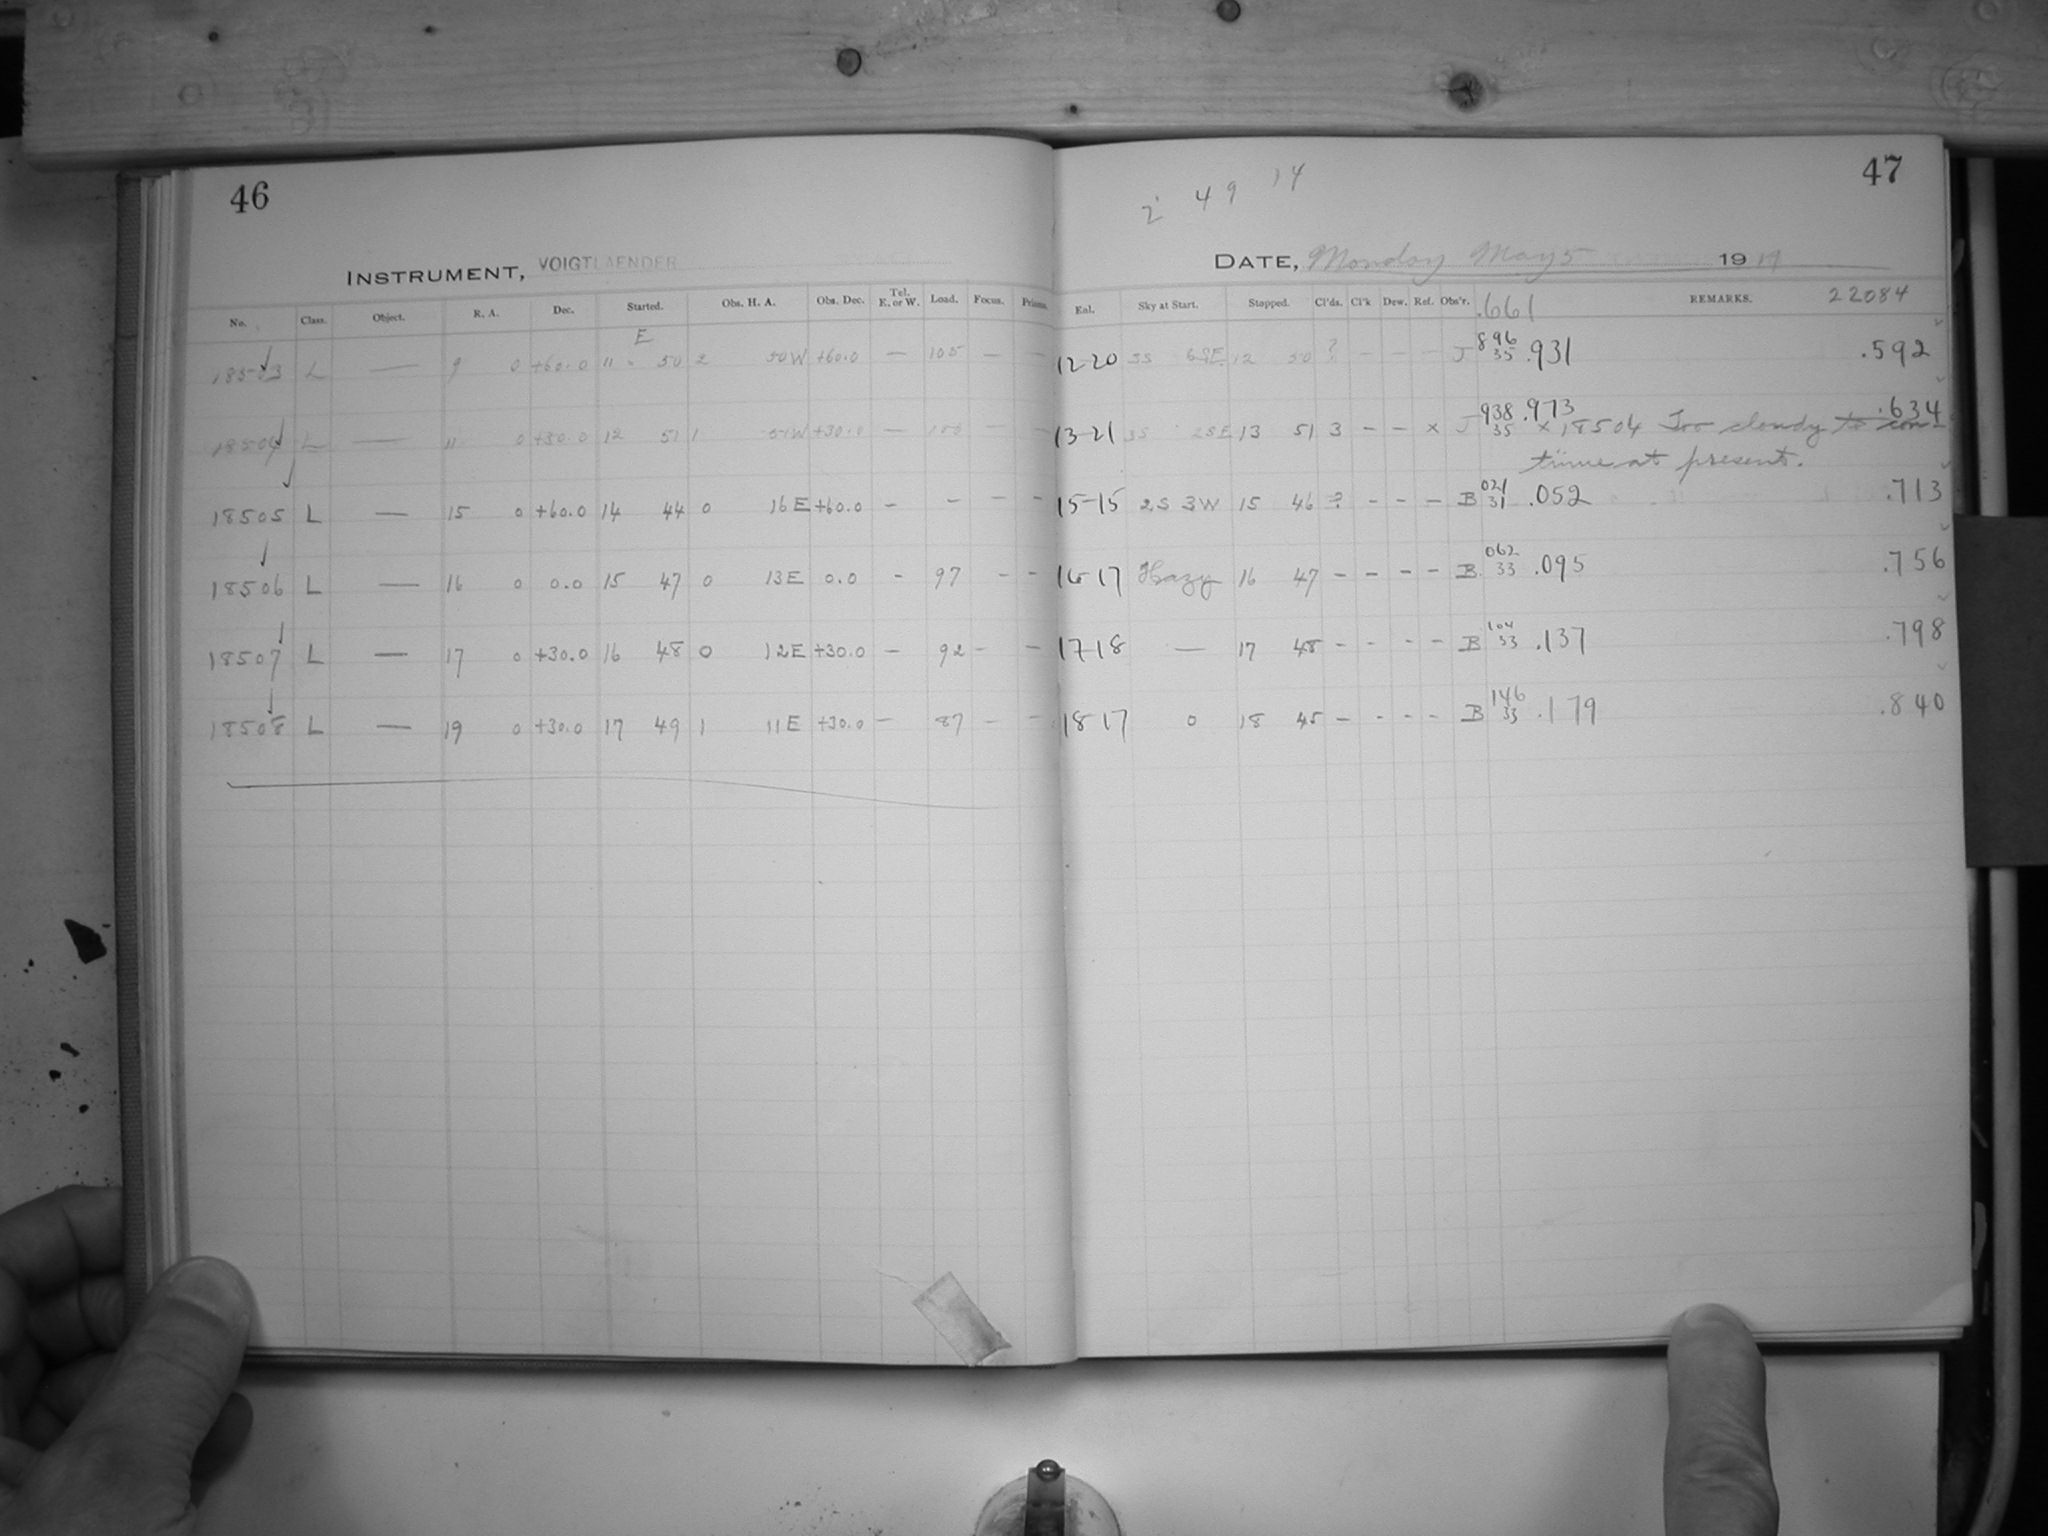 46
INSTRUMENT, VOIGTLAENDER
No. Class. Object. R. A. Dec. Started. Obs. H. A. Obs. Dec. Tel. E. or W. Load. Focus. Prisms.
E
18503 L — 9 0 +60.0 11 50 2 50W +60.0 — 105 — —
18504 L — 11 0 +30.0 12 51 1 51W +30.0 — — —
18505 L — 15 0 +60.0 14 44 0 16E +60.0 - - - -
18506 L — 16 0 0.0 15 47 0 13E 0.0 - 97 - -
18507 L — 17 0 +30.0 16 48 0 12E +30.0 — 92 - -
18508 L — 19 0 +30.0 17 49 1 11E +30.0 — 87 - -
47
2 49 14
DATE, Monday May 5 19 19
Exl. Sky at Start. Stopped. Cl'ds. Cl'k Dew. Ref. Obs'r. .661 REMARKS. 22084
12-20 12 50 ? - - - J 896 35 .931 .592
13-21 13 51 3 - - x J 938 35 .973 .634
x 18504 Too cloudy to con-
tinue at present.
15-15 2S 3W 15 46 ? - - - B 021 31 .052 .713
16-17 Hazy 16 47 - - - - B 062 33 .095 .756
17-18 — 17 48 - - - - B 104 33 .137 .798
18 17 0 18 45 - - - - B 146 33 .179 .840